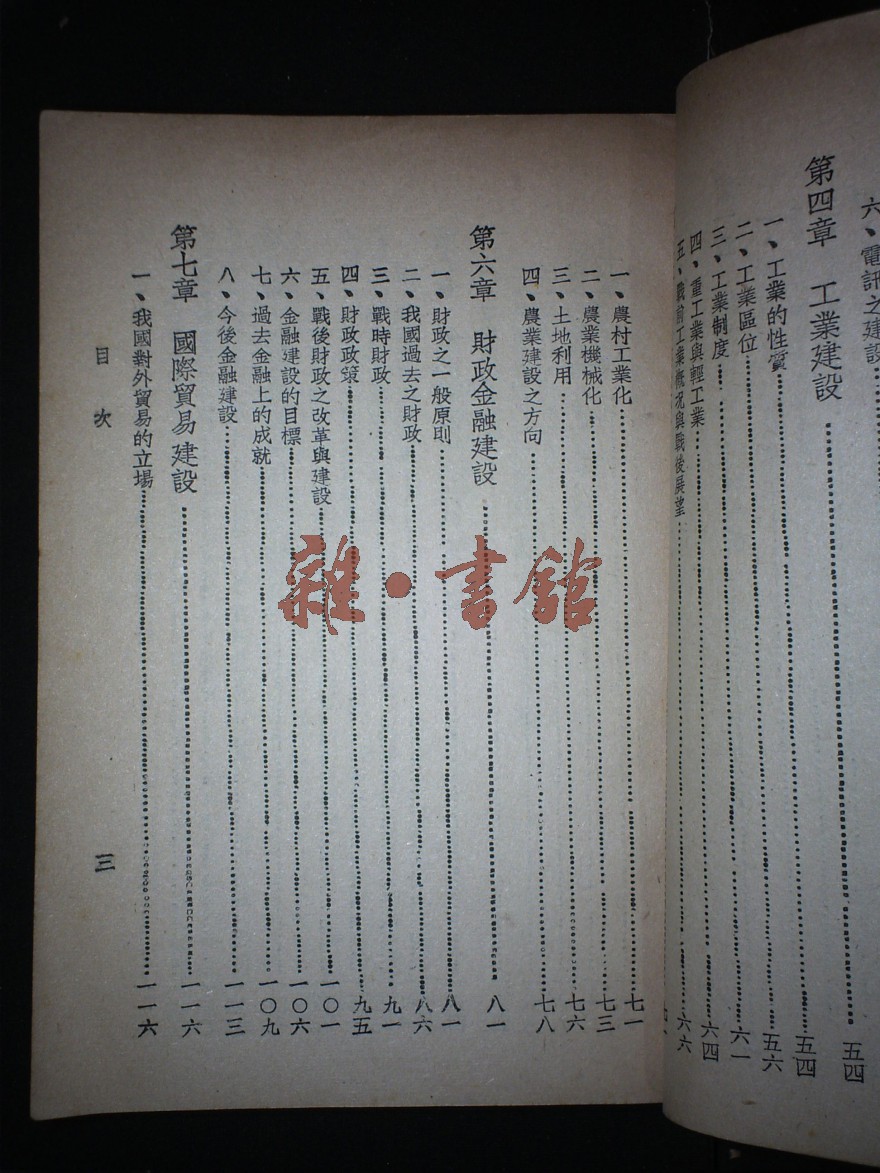 六、電訊之建設
第四章　工業建設……五四
一、工業的性質……五四
二、工業區位……五六
三、工業制度……六一
四、重工業與輕工業……六四
五、戰前工業概況與戰後展望……六六
一、農村工業化……七一
二、農業機械化……七三
三、土地利用……七六
四、農業建設之方向……七八
第六章　財政金融建設……八一
一、財政之一般原則……八一
二、我國過去之財政……八六
三、戰時財政……九一
四、財政政策……九五
五、戰後財政之改革與建設……一〇一
六、金融建設的目標……一〇六
七、過去金融上的成就……一〇九
八、今後金融建設……一一三
第七章　國際貿易建設……一一六
一、我國對外貿易的立場……一一六
目次
三
雜·書館